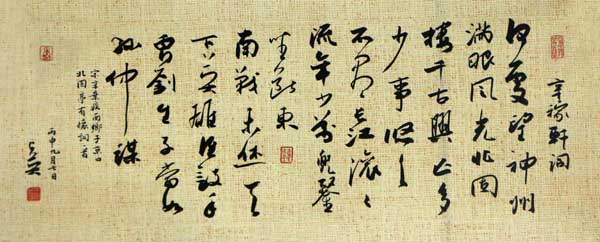 辛稼軒詞
何處望神州
滿眼風光北固
樓千古興亡多
少事悠〻
不盡長江滾〻
流年少萬兜鍪
坐斷東
南戰未休天
下英雄誰敵手
曹劉生子當如
孫仲謀
宋辛棄疾南鄉子京口
北固亭有懷詞
丙申九月七日